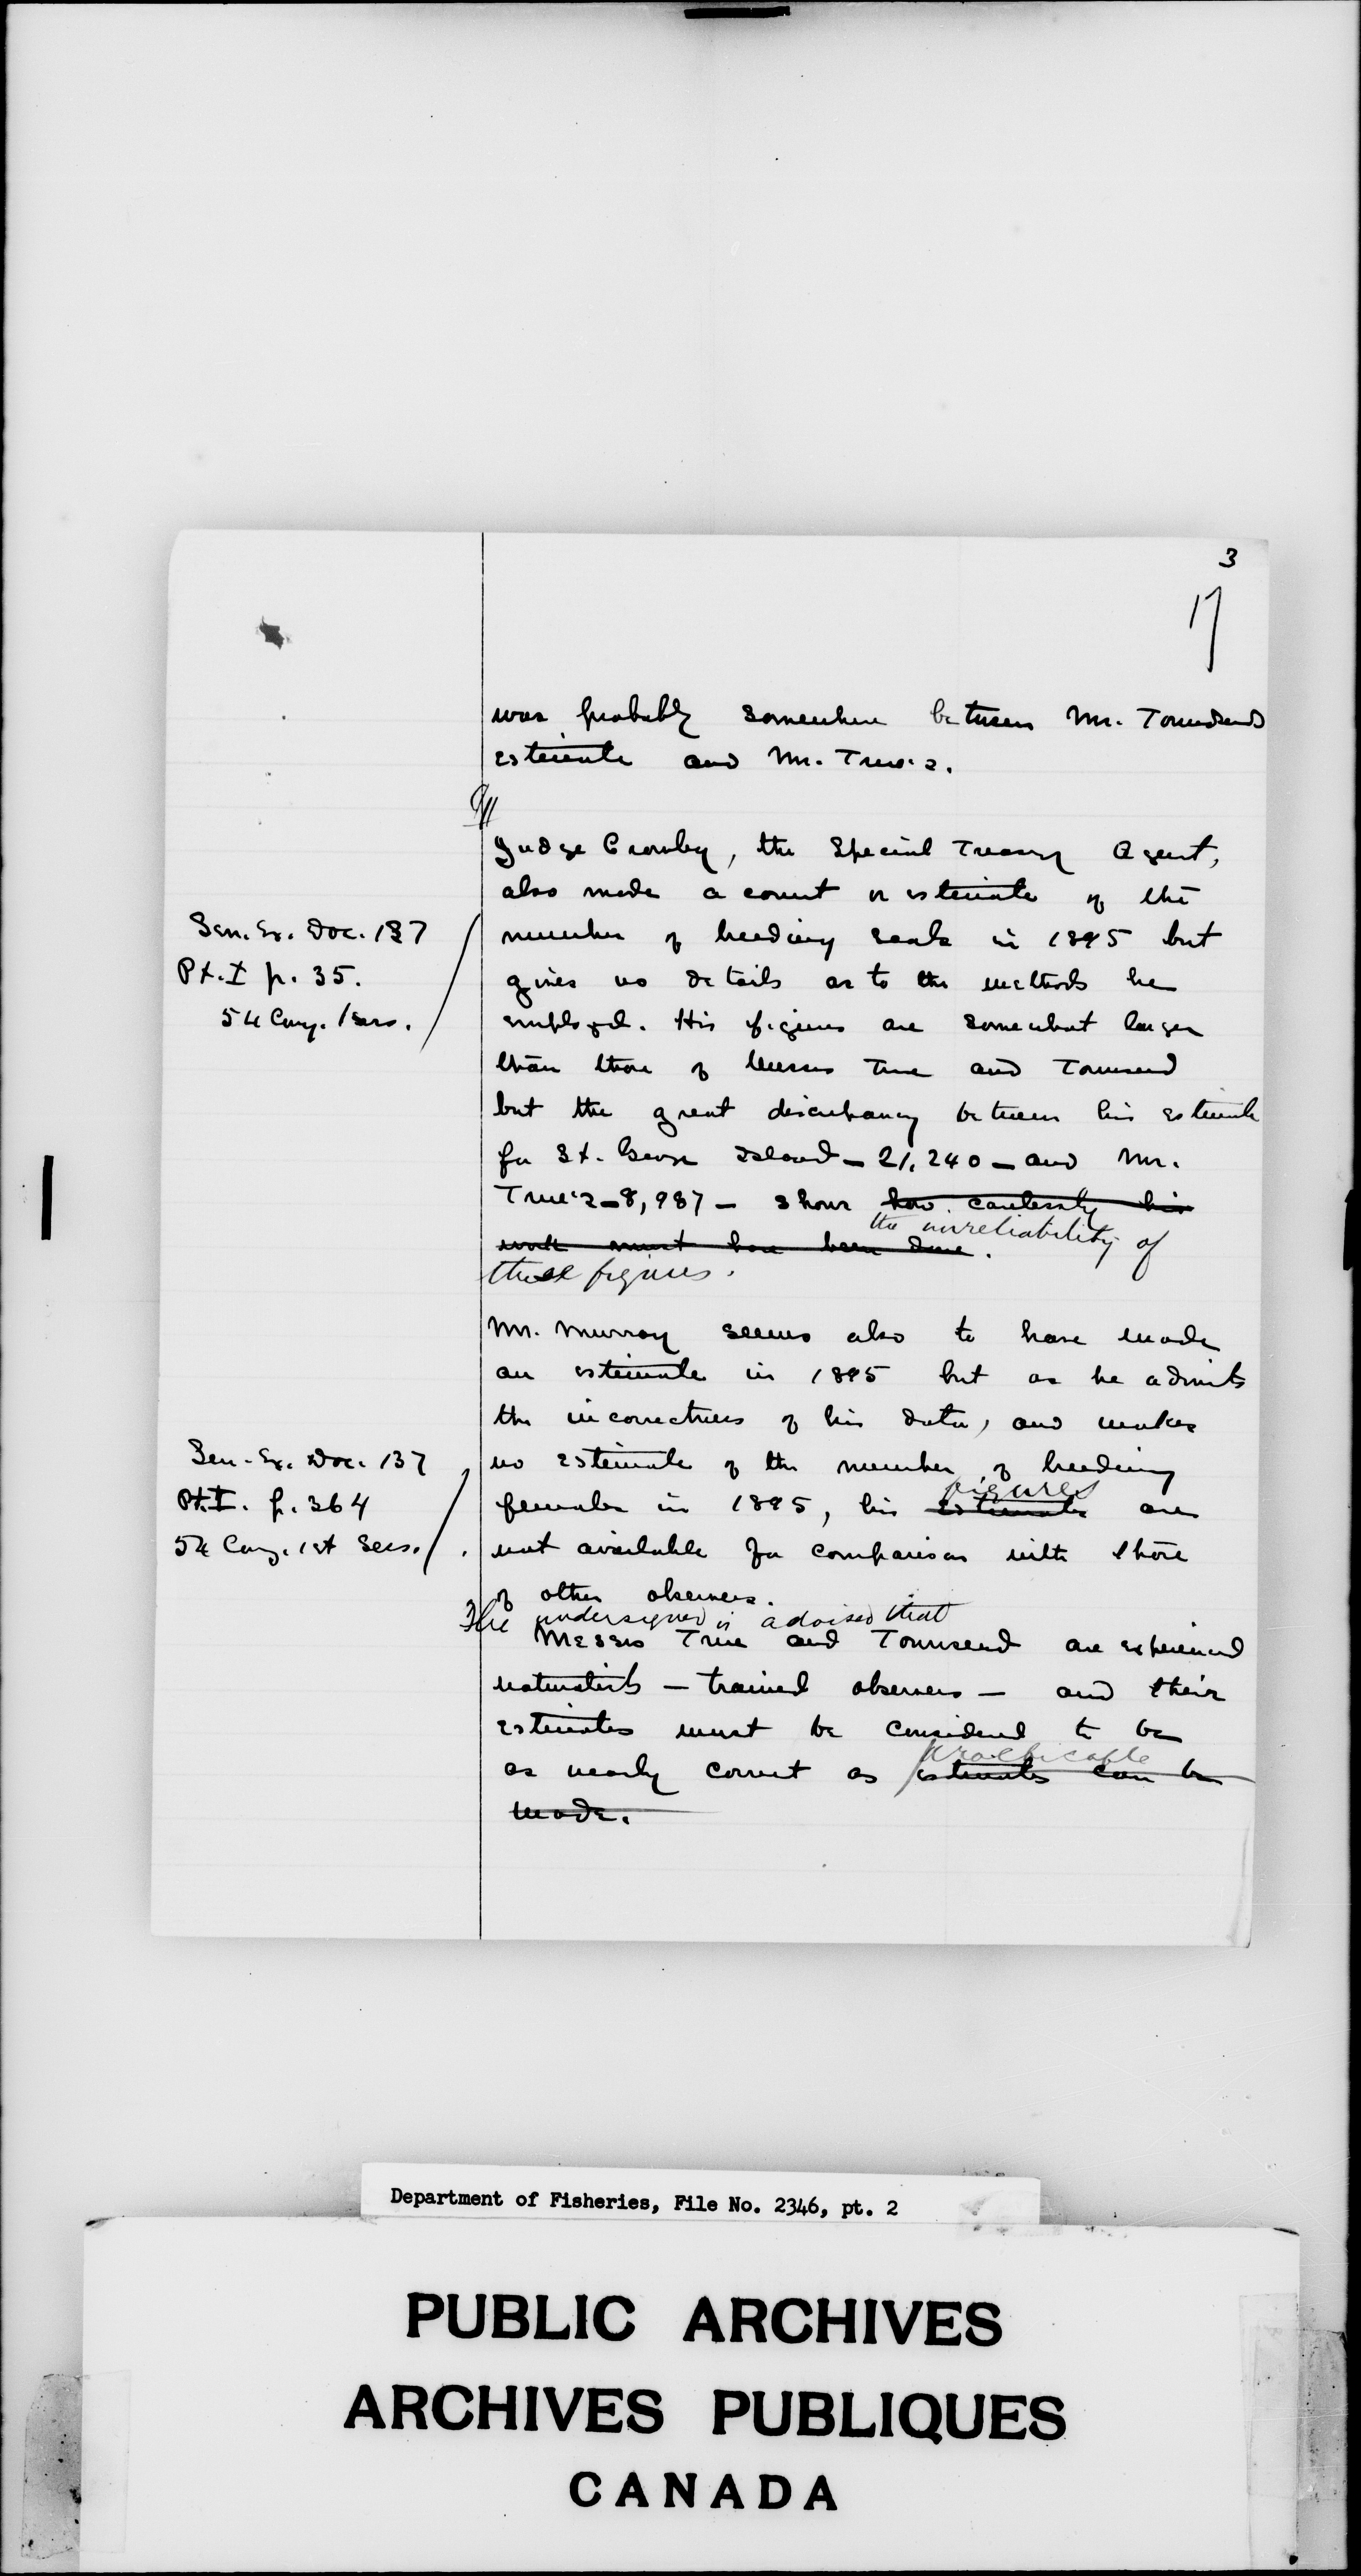 3
17
was probably somewhere between Mr. Townsend's
estimate and Mr. True's.
Judge Crowley, the Special Treasury Agent,
also made a count or estimate of the
Sen. Ex. Doc. 137
number of breeding seals in 1895 but
Pt. I p. 35.
gives no details as to the methods he
54 Cong. 1 Sess.
employed. His figures are somewhat larger
than those of Messrs True and Townsend
but the great discrepancy between his estimate
for St. George Island - 21,240 - and Mr.
True's - 8,987 - shows how carelessly his
the unreliability of
work must have been done.
these figures.
Mr. Murray seems also to have made
an estimate in 1895 but as he admits
the incorrectness of his data, and makes
Sen. Ex. Doc. 137
no estimate of the number of breeding
figures
Pt. I. p. 364
females in 1895, his estimates are
54 Cong. 1st Sess.
not available for comparison with those
of other observers.
The undersigned is advised that
Messrs True and Townsend are experienced
naturalists - trained observers - and their
estimates must be considered to be
practicable
as nearly correct as estimates can be
made.
Department of Fisheries, File No. 2346, pt. 2
PUBLIC ARCHIVES
ARCHIVES PUBLIQUES
CANADA